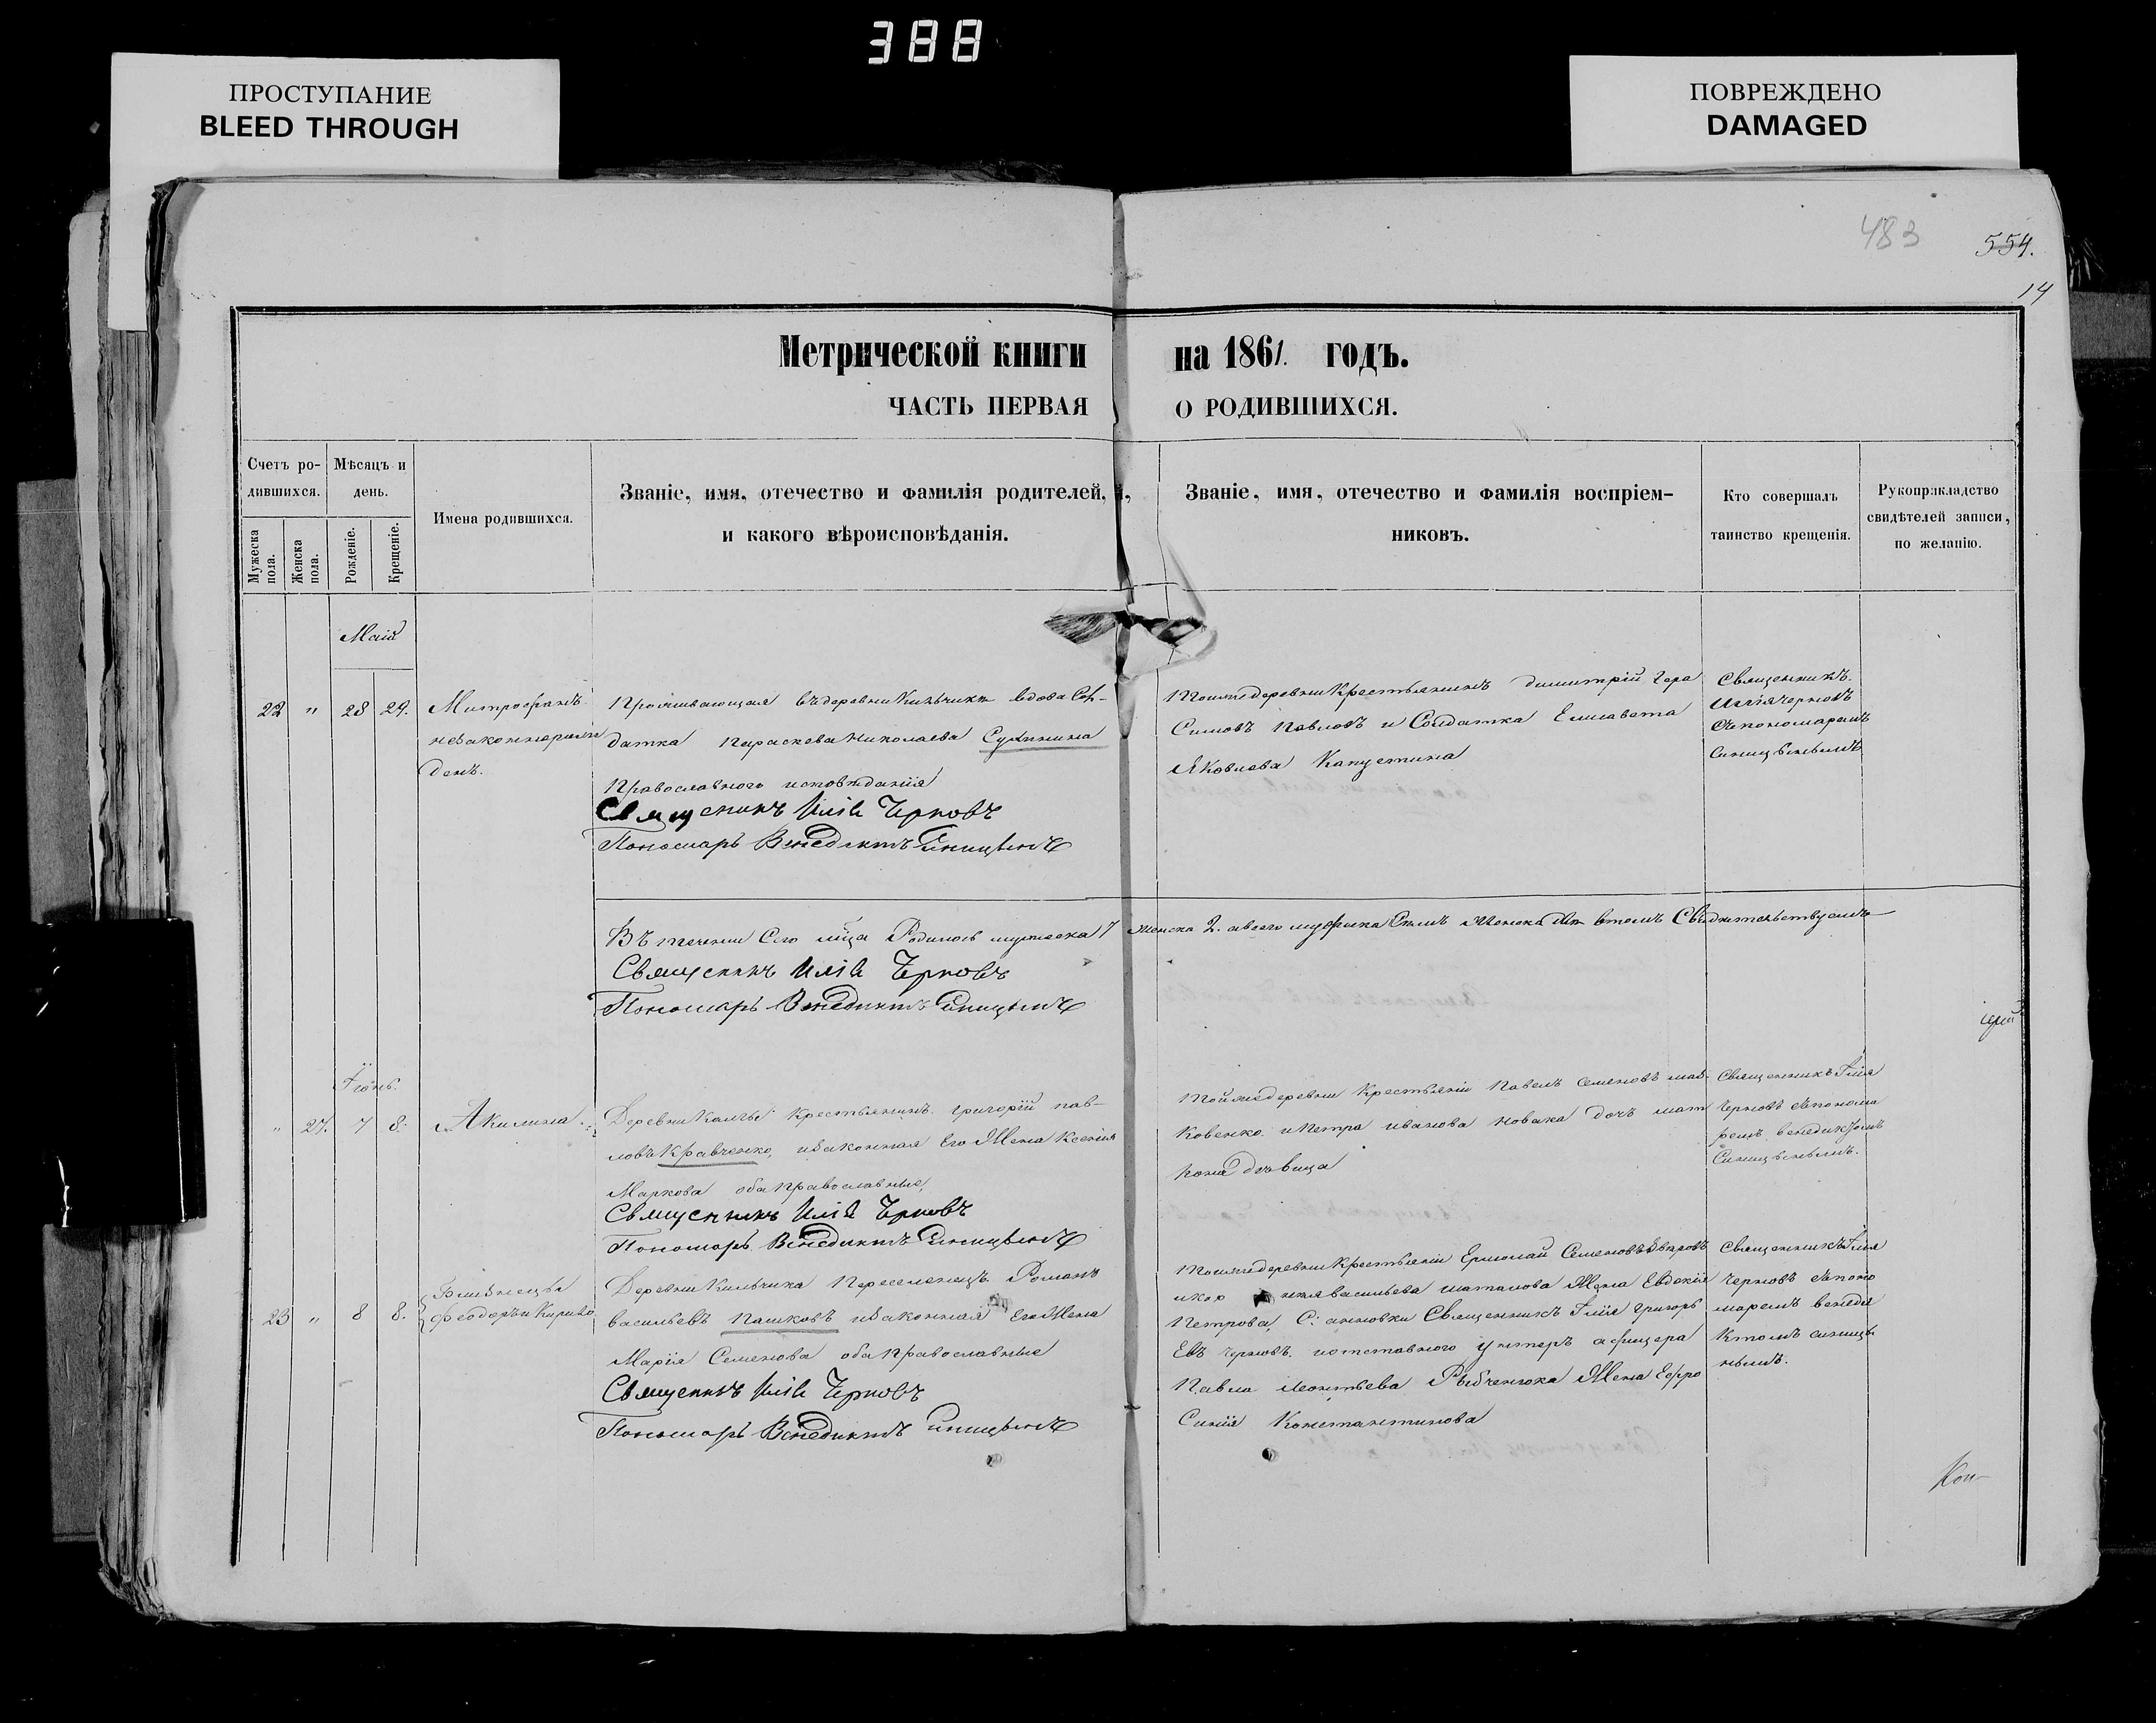 388
ПРОСТУПАНИЕ
BLEED THROUGH
ПОВРЕЖДЕНО
DAMAGED
483
554.
14
Метрической книги на 1861. годъ.
ЧАСТЬ ПЕРВАЯ О РОДИВШИХСЯ.
Счетъ ро-
дившихся.
Мужеска
пола.
Женска
пола.
Мѣсяцъ и
день.
Рожденіе.
Крещеніе.
Имена родившихся.
Званіе, имя, отечество и фамилія родителей,
и какого вѣроисповѣданія.
Званіе, имя, отечество и фамилія воспріем-
никовъ.
Кто совершалъ
таинство крещенія.
Рукоприкладство
свидѣтелей записи,
по желанію.
Маія
22 " 28 29.
Митрофанъ
незаконнорож
денъ.
Проживающая въ деревни Кильчикъ вдова Сол-
датка Параскева Николаева
Православного исповѣданія
Священникъ Илія Черновъ
Пономарь Венедиктъ Синицынъ
Тойже деревни Крестьянинъ Димитрій Гера
Симовъ Павловъ и Солдатка Елисавета
Яковлева Капустина
Священникъ
Илія Черновъ
съ пономаремъ
Синицынымъ
Въ теченіи Сего мѣца Родилось мужеска 7 женска 2. Свидѣтельствуемъ
Священникъ Илія Черновъ
Пономарь Венедиктъ Синицынъ
Іюнь.
" 27. 7 8.
Акилина
Деревни Калчы Крестьянинъ Григорій Пав-
ловъ Кравченко, изаконная Его Жена Ксенія
Маркова оба православные,
Священникъ Илія Черновъ
Пономарь Венедиктъ Синицынъ
Тойже деревни Крестьянин Павелъ Семеновъ
Ковенко и Петра Иванова Новака дочь
дѣвица
Священникъ Илія
Черновъ съ понома
ремъ венедиктомъ
Синицынымъ.
23 " 8 8.
Близнецы
Феодоръ и Кирило
Деревни Кильчика Переселенецъ Романъ
Васильевъ Пашковъ изаконная Его Жена
Марія Семенова оба православные
Священникъ Илія Черновъ
Пономарь Венедиктъ Синицынъ
Тойже деревни Крестьянин Ермолай Семеновъ
Васильева Шаталова Жена Евдокія
Петрова, С: анновки Священникъ Илія Григорь
Евъ Черновъ. и отставного унтеръ афицера
Павла Леонтьева Рябченюка Жена Ефро
Синія Константинова
Священникъ Илія
Черновъ съ поно
маремъ венеди
Ктомъ синицы
нымъ.
Кол-